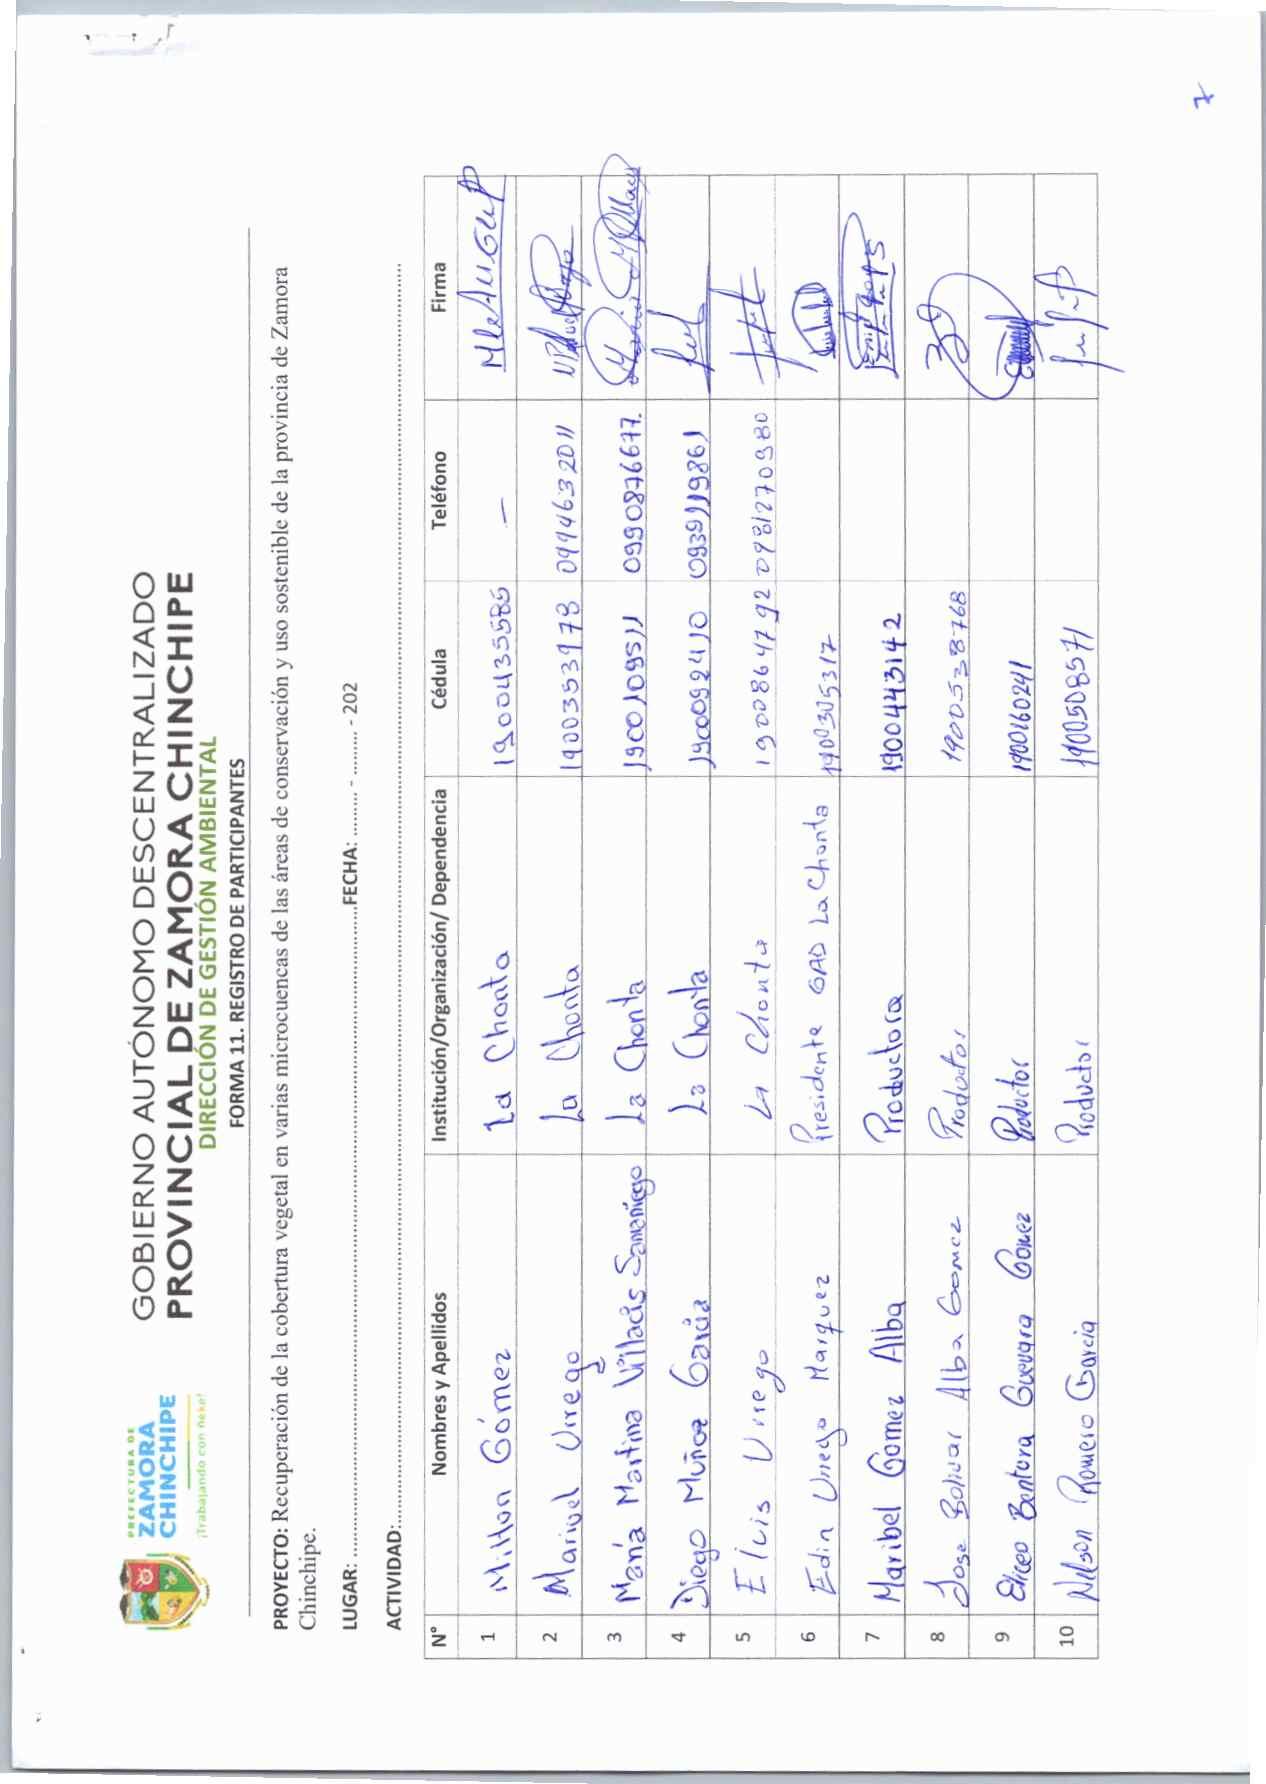 PREFECTURA DE
ZAMORA
CHINCHIPE
¡Trabajando con ñeke!
GOBIERNO AUTÓNOMO DESCENTRALIZADO
PROVINCIAL DE ZAMORA CHINCHIPE
DIRECCIÓN DE GESTIÓN AMBIENTAL
FORMA 11. REGISTRO DE PARTICIPANTES
PROYECTO: Recuperación de la cobertura vegetal en varias microcuencas de las áreas de conservación y uso sostenible de la provincia de Zamora
Chinchipe.
LUGAR: ........ FECHA: ........ - ........ - 202
ACTIVIDAD: ........
N° Nombres y Apellidos Institución/Organización/ Dependencia Cédula Teléfono Firma
1 Milton Gómez La Chonta 1900435585 —
2 Marivel Urrego La Chonta 1900353978 0994632011
3 María Martina Villacis Samaniego La Chonta 1900109511 0990876677.
4 Diego Muñoz García La Chonta 1900092410 0939119861
5 Elvis Urrego La Chonta 1900864792 0981270980
6 Edin Urrego Marquez Presidente GAD La Chonta 1900305317
7 Maribel Gomez Alba Productora 1900443142
8 Jose Bolivar Alba Gomez Productor 1900538768
9 Eliceo Bentura Guevara Gomez Productor 1900160241
10 Nelson Romero Garcia Productor 1900508571